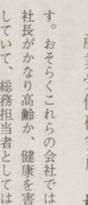 す。おそらくこれらの会社では
社長がかなり高齢か、健康を害
していて、総務担当者としては